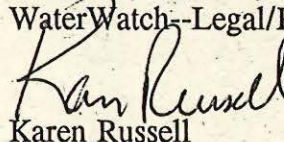 WaterWatch--Legal/
Karen Russell
Karen Russell